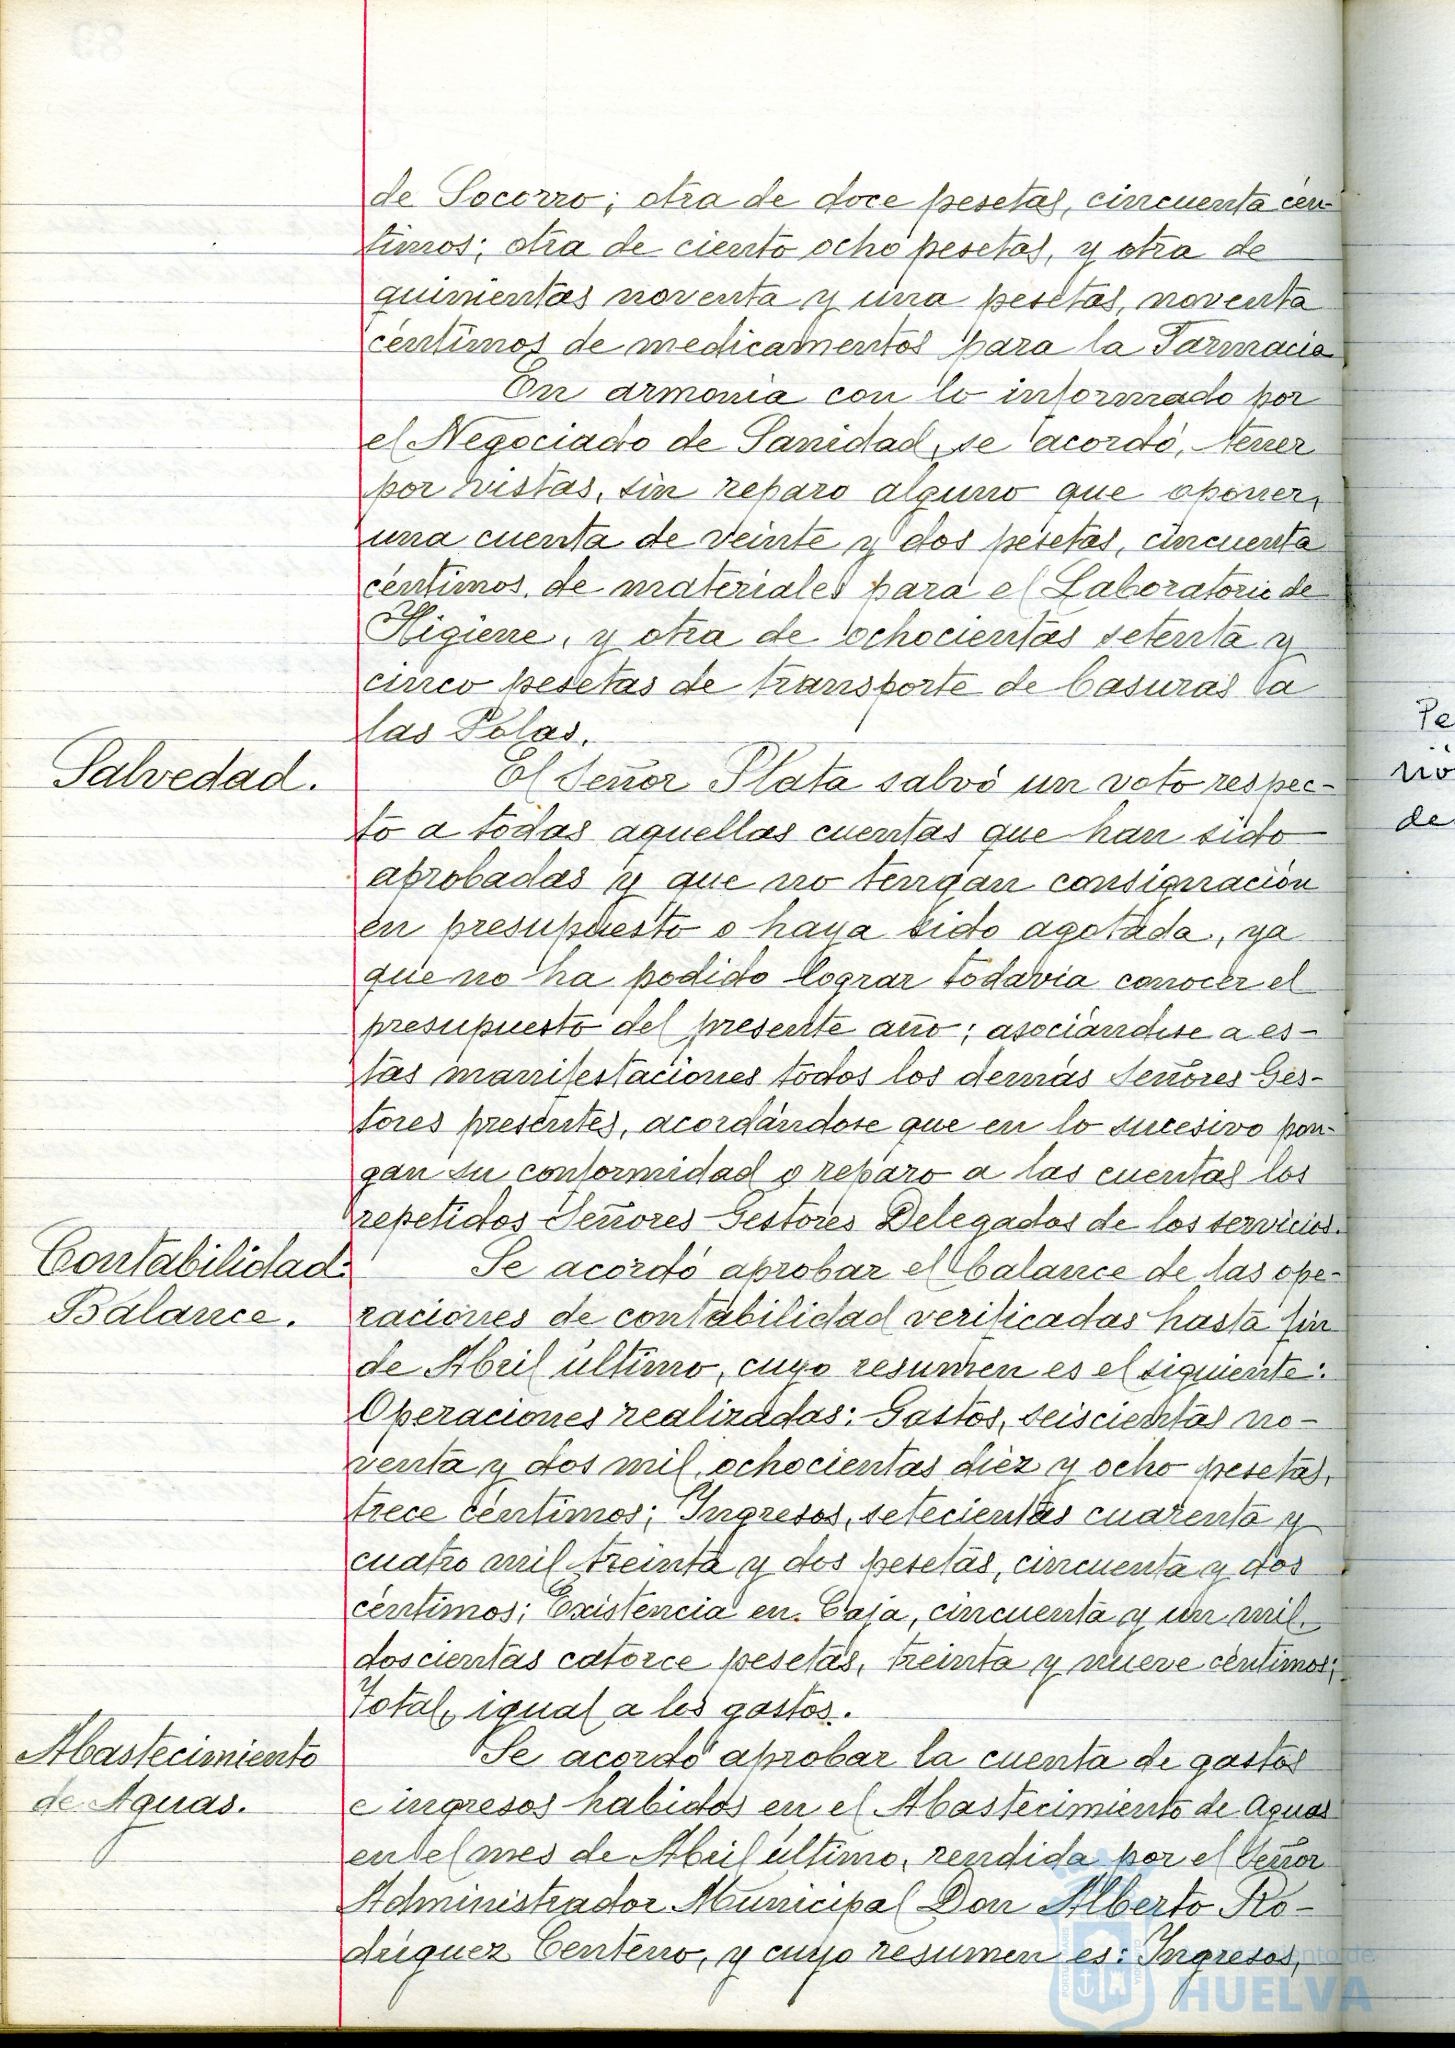 de Socorro; otra de doce pesetas, cincuenta cén-
timos; otra de ciento ocho pesetas, y otra de
quinientas noventa y una pesetas, noventa
céntimos de medicamentos para la Farmacia
En armonía con lo informado por
el Negociado de Sanidad, se acordó, tener
por vistas, sin reparo alguno que oponer,
una cuenta de veinte y dos pesetas, cincuenta
céntimos, de materiales para el Laboratorio de
Higiene, y otra de ochocientas setenta y
cinco pesetas de transporte de basuras a
las Polas.
Salvedad.
El Señor Plata salvó un voto respec-
to a todas aquellas cuentas que han sido
aprobadas y que no tengan consignación
en presupuesto o haya sido agotada, ya
que no ha podido lograr todavía conocer el
presupuesto del presente año; asociándose a es-
tas manifestaciones todos los demás Señores Ges-
tores presentes, acordándose que en lo sucesivo pon-
gan su conformidad o reparo a las cuentas los
repetidos Señores Gestores Delegados de los servicios.
Contabilidad:
Balance.
Se acordó aprobar el balance de las ope-
raciones de contabilidad verificadas hasta fin
de Abril último, cuyo resumen es el siguiente:
Operaciones realizadas: Gastos, seiscientas no-
venta y dos mil, ochocientas diez y ocho pesetas,
trece céntimos; Ingresos, setecientas cuarenta y
cuatro mil treinta y dos pesetas, cincuenta y dos
céntimos; Existencia en Caja, cincuenta y un mil
doscientas catorce pesetas, treinta y nueve céntimos;
Total, igual a los gastos.
Abastecimiento
de Aguas.
Se acordó aprobar la cuenta de gastos
e ingresos habidos en el Abastecimiento de Aguas
en el mes de Abril último, rendida por el Señor
Administrador Municipal Don Alberto Ro-
dríguez Centeno, y cuyo resumen es: Ingresos,
Pe
nó
de
HUELVA